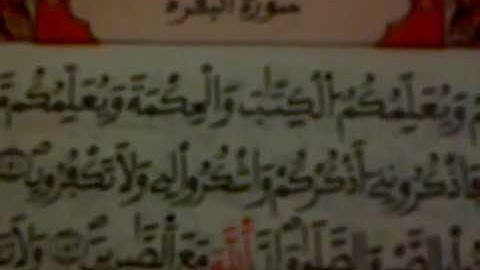 سورة البقرة
وَيُعَلِّمُكُمُ الْكِتَٰبَ وَالْحِكْمَةَ وَيُعَلِّمُكُم
فَاذْكُرُونِىٓ أَذْكُرْكُمْ وَاشْكُرُوا لِى وَلَا تَكْفُرُونِ
وَالصَّلَوٰةِ إِنَّ اللَّهَ مَعَ الصَّٰبِرِينَ وَلَا